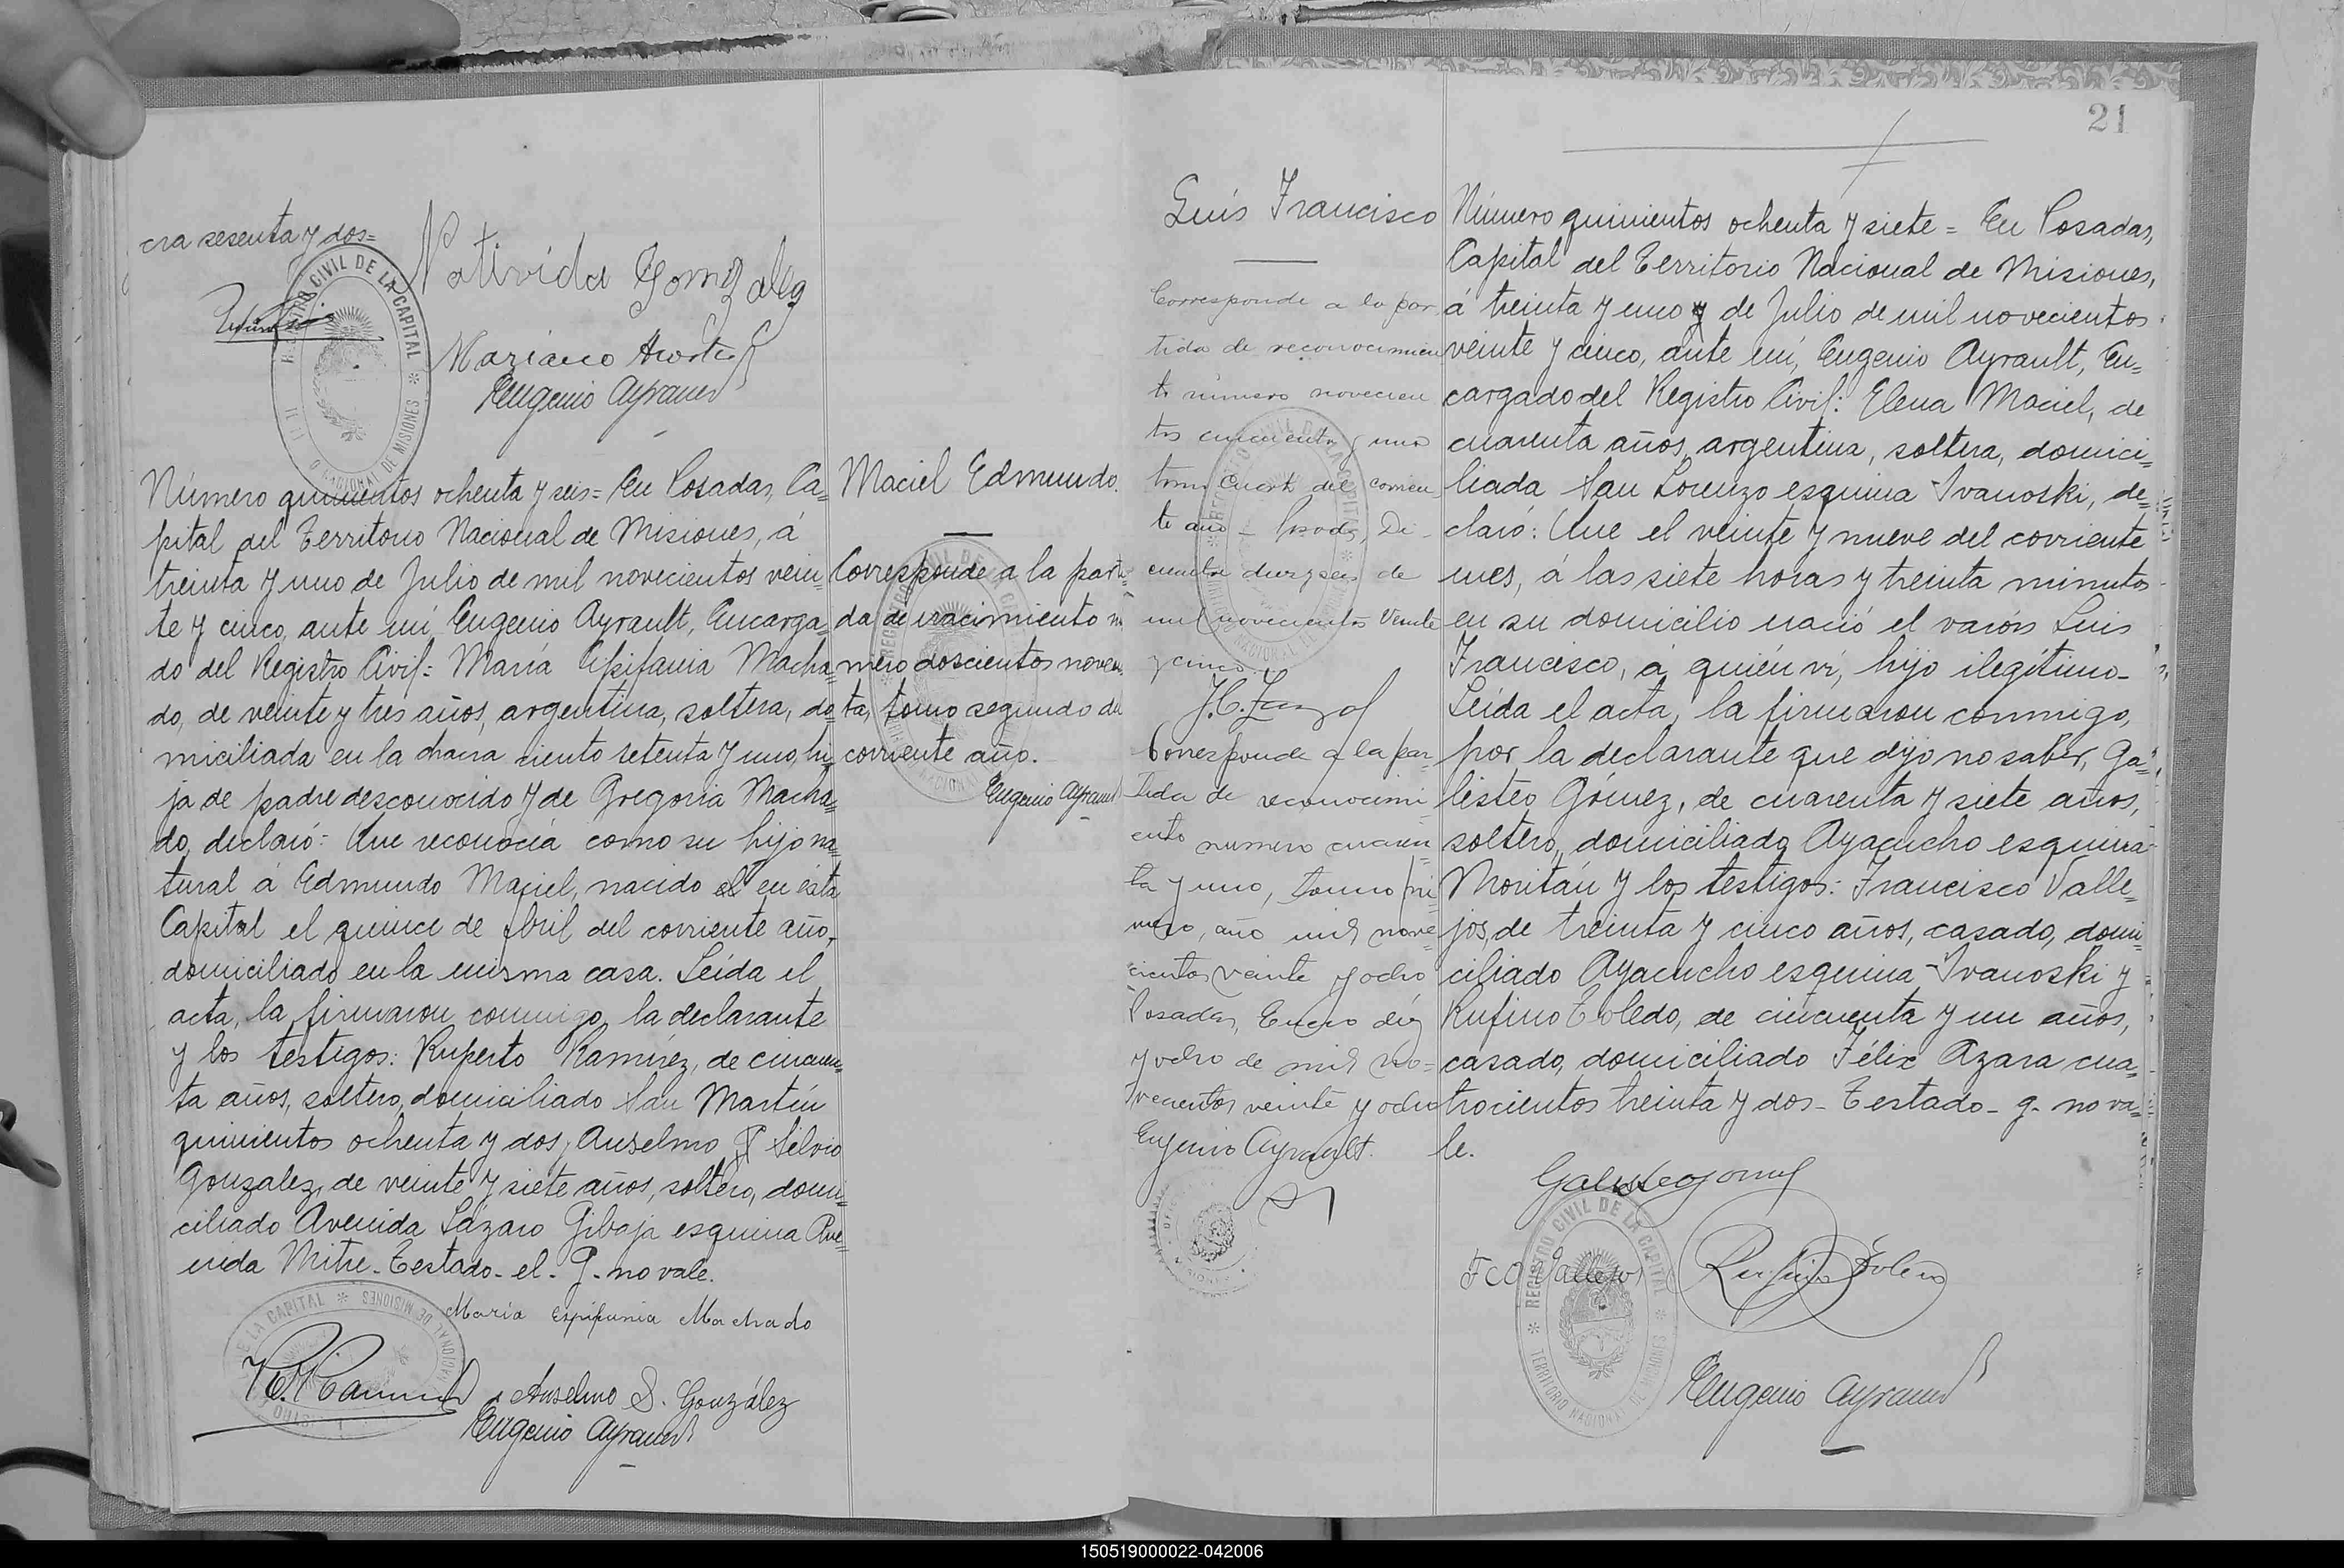 cra sesenta y dos=
Natividá Gomzalez
Mariano
Eugenio Ayrault
REGISTRO CIVIL DE LA CAPITAL * TERRITORIO NACIONAL DE MISIONES *
Número quinientos ochenta y seis= En Posadas, Ca=
pital del Territorio Nacional de Misiones, á
treinta y uno de Julio de mil novecientos vein
te y cinco, ante mí, Eugenio Ayrault, Encarga=
do del Registro Civil: María Epifania Macha=
do, de veinte y tres años, argentina, soltera, do=
miciliada en la chacra ciento setenta y uno, hi=
ja de padre desconocido y de Gregoria Macha=
do, declaró: Que reconocía como su hijo na=
tural á Edmundo Maciel, nacido el en ésta
Capital el quince de Abril del corriente año,
domiciliado en la misma casa. Leída el
acta, la firmaron conmigo, la declarante
y los testigos: Ruperto Ramírez, de cincuen=
ta años, soltero, domiciliado San Martín
quinientos ochenta y dos, Anselmo G Silvio
Gonzalez, de veinte y siete años, soltero, domi=
ciliado Avenida Lázaro Gibaja esquina Ave=
nida Mitre_Testado_el_G_no vale.
María Epifania Machado
R. Ramirez
Anselmo S. González
Eugenio Ayrault
Maciel Edmundo.
Corresponde a la parti=
da de nacimiento nú
mero doscientos noven
ta, tomo segundo del
corriente año.
Eugenio Ayrault
21
Luís Francisco
Corresponde a la par
tida de reconocimien
to número novecien
tos cincuenta y uno
tomo cuarto del corrien
te año _ Posadas, Di_
ciembre diez y seis de
mil novecientos veinte
y cinco.
Corresponde a la par=
tida de reconocimi
ento numero cuaren
ta y uno, tomo pri
mero, año mil nove
cientos veinte y ocho
Posadas, Enero diez
y ocho de mil no=
vecientos veinte y ocho
Eugenio Ayrault.
Número quinientos ochenta y siete= En Posadas,
Capital del Territorio Nacional de Misiones,
á treinta y uno y de Julio de mil novecientos
veinte y cinco, ante mí, Eugenio Ayrault, En=
cargado del Registro Civil: Elena Maciel, de
cuarenta años, argentina, soltera, domici=
liada San Lorenzo esquina Ivanoski, de=
claró: Que el veinte y nueve del corriente
mes, á las siete horas y treinta minutos
en su domicilio nació el varón Luis
Francisco, á quién ví, hijo ilegítimo_
Leída el acta, la firmaron conmigo,
por la declarante que dijo no saber, Ga=
listeo Gómez, de cuarenta y siete años,
soltero, domiciliado Ayacucho esquina
Moritán y los testigos: Francisco Valle=
jos, de treinta y cinco años, casado, domi=
ciliado Ayacucho esquina Ivanoski y
Rufino Toledo, de cincuenta y un años,
casado, domiciliado Félix Azara cua=
trocientos treinta y dos_Testado_y_no va=
le.
Galisteo Gomez
Fco Vallejos
Rufino Toledo
REGISTRO CIVIL DE LA CAPITAL * TERRITORIO NACIONAL DE MISIONES *
Eugenio Ayrault
150519000022-042006